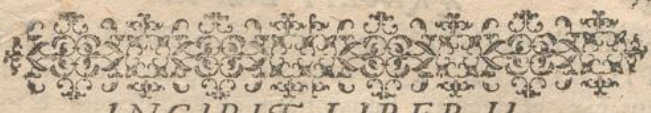 INCIPIT LIBER II.